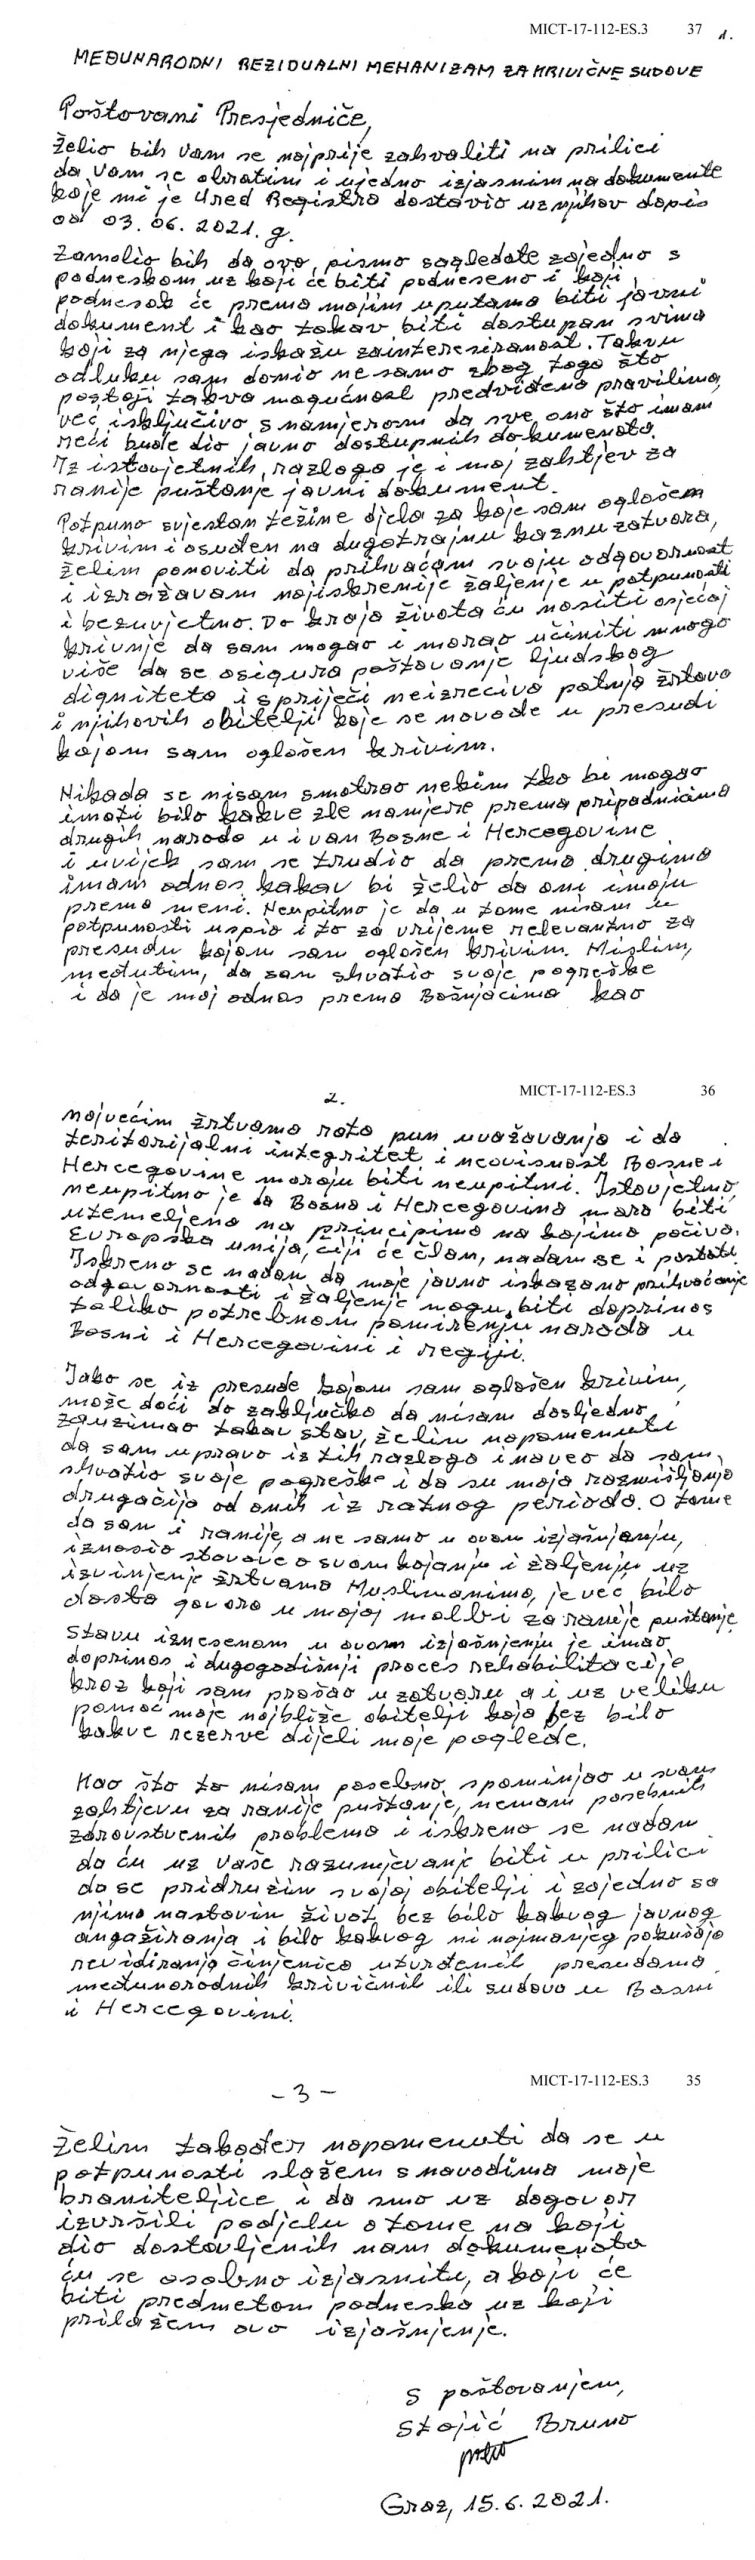 MICT-17-112-ES.3 37
1.
MEĐUNARODNI REZIDUALNI MEHANIZAM ZA KRIVIČNE SUDOVE
Poštovani Presjedniče,
Želio bih Vam se najprije zahvaliti na prilici
da Vam se obratim i ujedno izjasnim na dokumente
koje mi je Ured Registra dostavio uz njihov dopis
od 03. 06. 2021. g.
Zamolio bih da ovo pismo sagledate zajedno s
podneskom uz koji će biti podneseno i koji
podnesak će prema mojim uputama biti javni
dokument i kao takav biti dostupan svima
koji za njega iskažu zainteresiranost. Takvu
odluku sam donio ne samo zbog toga što
postoji takva mogućnost predviđena pravilima,
već isključivo s namjerom da sve ono što imam
reći bude dio javno dostupnih dokumenata.
Iz istovjetnih razloga je i moj zahtjev za
ranije puštanje javni dokument.
Potpuno svjestan težine djela za koje sam oglašen
krivim i osuđen na dugotrajnu kaznu zatvora,
želim ponoviti da prihvaćam svoju odgovornost
i izražavam najiskrenije žaljenje u potpunosti
i bezuvjetno. Do kraja života ću nositi osjećaj
krivnje da sam mogao i morao učiniti mnogo
više da se osigura poštovanje ljudskog
digniteta i spriječi neizreciva patnja žrtava
i njihovih obitelji koje se navode u presudi
kojom sam oglašen krivim.
Nikada se nisam smatrao nekim tko bi mogao
imati bilo kakve zle namjere prema pripadnicima
drugih naroda u i van Bosne i Hercegovine
i uvijek sam se trudio da prema drugima
imam odnos kakav bi želio da oni imaju
prema meni. Neupitno je da u tome nisam u
potpunosti uspio i to za vrijeme relevantno za
presudu kojom sam oglašen krivim. Mislim,
međutim, da sam shvatio svoje pogreške
i da je moj odnos prema Bošnjacima kao
MICT-17-112-ES.3 36
2.
najvećim žrtvama rata pun uvažavanja i da
teritorijalni integritet i neovisnost Bosne i
Hercegovine moraju biti neupitni. Istovjetno,
neupitno je da Bosna i Hercegovina mora biti
utemeljena na principima na kojima počiva
Evropska unija, čiji će član, nadam se i postati.
Iskreno se nadam da moje javno iskazano prihvaćanje
odgovornosti i žaljenje mogu biti doprinos
toliko potrebnom pomirenju naroda u
Bosni i Hercegovini i regiji.
Iako se iz presude kojom sam oglašen krivim,
može doći do zaključka da nisam dosljedno
zauzimao takav stav, želim napomenuti
da sam upravo iz tih razloga i naveo da sam
shvatio svoje pogreške i da su moja razmišljanja
drugačija od onih iz ratnog perioda. O tome
da sam i ranije, a ne samo u ovom izjašnjanju,
iznosio stavove o svom kajanju i žaljenju uz
izvinjenje žrtvama Muslimanima, je već bilo
dosta govora u mojoj molbi za ranije puštanje.
Stavu iznesenom u ovom izjašnjenju je imao
doprinos i dugogodišnji proces rehabilitacije
kroz koji sam prošao u zatvoru a i uz veliku
pomoć moje najbliže obitelji koja bez bilo
kakve rezerve dijeli moje poglede.
Kao što to nisam posebno spominjao u svom
zahtjevu za ranije puštanje, nemam posebnih
zdravstvenih problema i iskreno se nadam
da ću uz Vaše razumjevanje biti u prilici
da se pridružim svojoj obitelji i zajedno sa
njima nastavim život bez bilo kakvog javnog
angažiranja i bilo kakvog ni najmanjeg pokušaja
revidiranja činjenica utvrđenih presudama
međunarodnih krivičnih ili sudova u Bosni
i Hercegovini.
MICT-17-112-ES.3 35
- 3 -
Želim također napomenuti da se u
potpunosti slažem s navodima moje
braniteljice i da smo uz dogovor
izvršili podjelu o tome na koji
dio dostavljenih nam dokumenata
ću se osobno izjasnitu, a koji će
biti predmetom podneska uz koji
prilažem ovo izjašnjenje.
S poštovanjem,
Stojić Bruno
Graz, 15.6.2021.